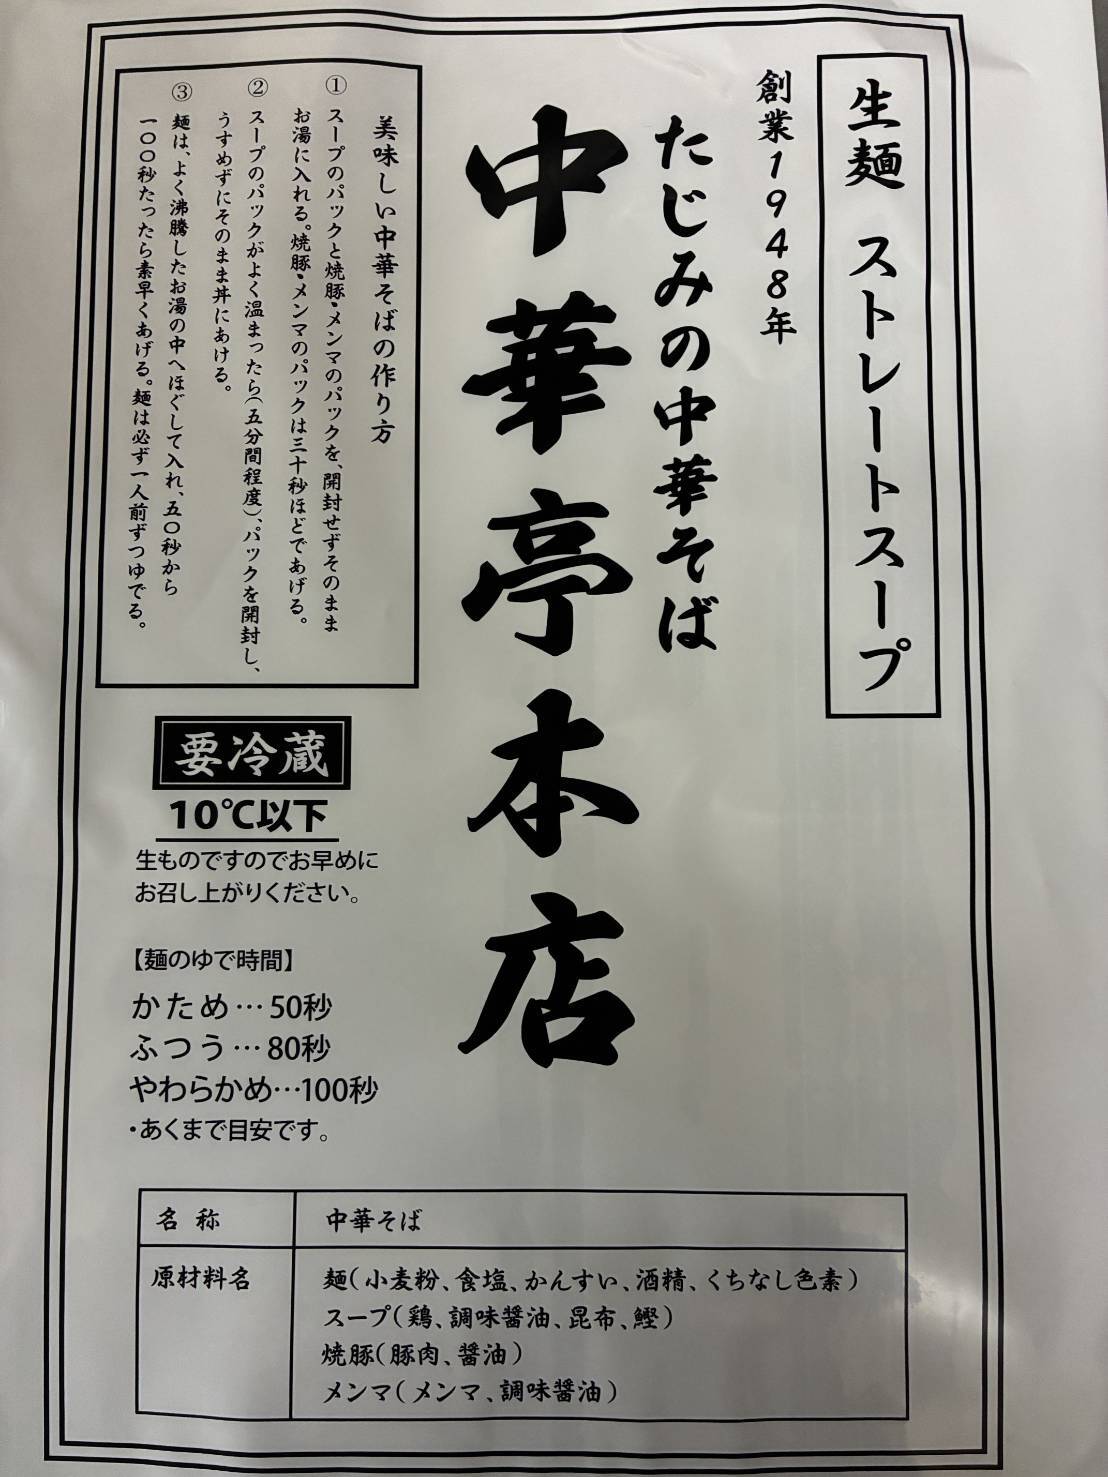 生麺 ストレートスープ
創業1948年
たじみの中華そば
中華亭本店
美味しい中華そばの作り方
① スープのパックと焼豚・メンマのパックを、開封せずそのまま
お湯に入れる。焼豚・メンマのパックは三十秒ほどであげる。
② スープのパックがよく温まったら(五分間程度)、パックを開封し、
うすめずにそのまま丼にあける。
③ 麺は、よく沸騰したお湯の中へほぐして入れ、五〇秒から
一〇〇秒たったら素早くあげる。麺は必ず一人前ずつゆでる。
要冷蔵
10℃以下
生ものですのでお早めに
お召し上がりください。
【麺のゆで時間】
かため…50秒
ふつう…80秒
やわらかめ…100秒
・あくまで目安です。
名 称 中華そば
原材料名 麺(小麦粉、食塩、かんすい、酒精、くちなし色素)
スープ(鶏、調味醤油、昆布、鰹)
焼豚(豚肉、醤油)
メンマ(メンマ、調味醤油)